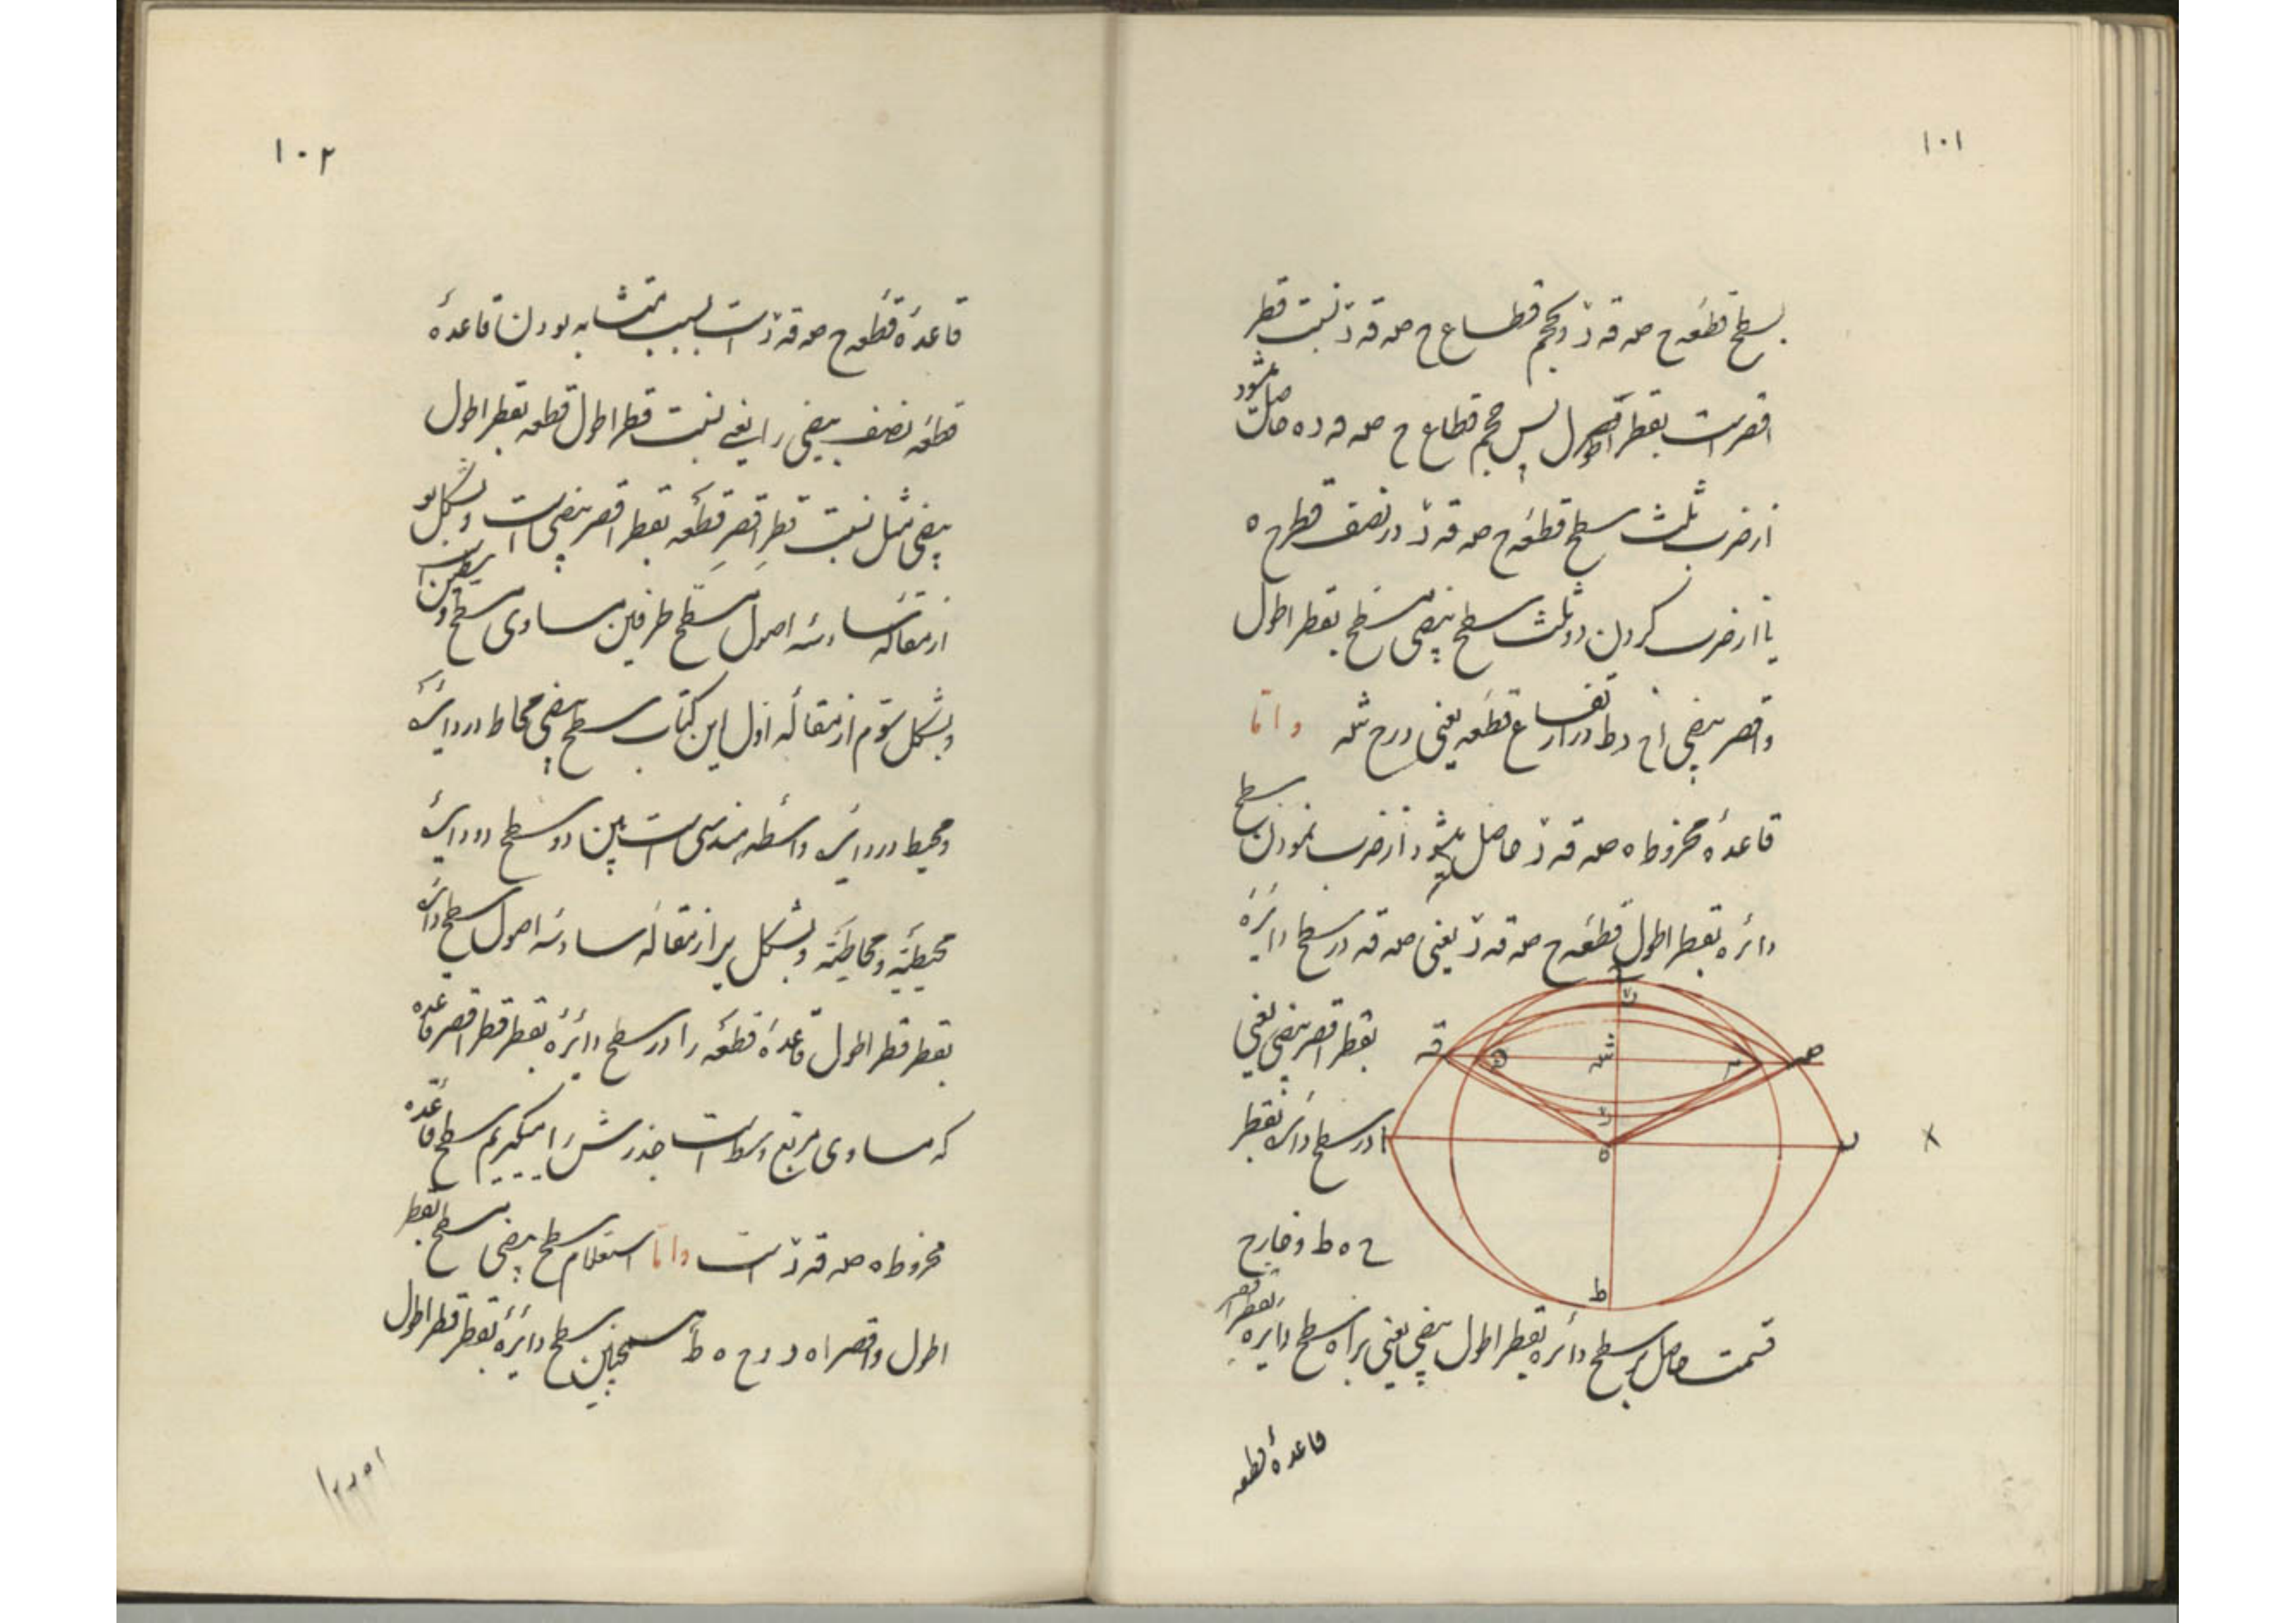 ۱۰۱
بسطح قطعه ح صه قه ز و بحجم قطاع ح صه قه ز نسبت قطر
اقصر است بقطر اطول پس حجم قطاع ح صه قه ز ه حاصل میشود
از ضرب ثلث سطح قطعه ح صه قه ز در نصف قطر ح ه
یا از ضرب کردن دو ثلث سطح بیضی مسطح بقطر اطول
و اقصر بیضی ا ح د ط در ارتفاع قطعه یعنی در ح شه و اما
قاعدهٔ مخروط ه صه قه ز حاصل میشود از ضرب نمودن سطح
دائره بقطر اطول قطعه ح صه قه ز یعنی صه قه در سطح دایرهٔ
بقطر اقصر بیضی یعنی
در سطح دائره بقطر
ح ه ط و خارج
قه
صه
ا
د
ه
ط
قسمت حاصل بر سطح دائره بقطر اطول بیضی یعنی بر اه سطح دایره بقطر اقصر
قاعدهٔ قطعه
۱۰۲
قاعدهٔ قطعه ح صه قه ز است بسبب متشابه بودن قاعدهٔ
قطعه نصف بیضی را یعنی نسبت قطر اطول قطعه بقطر اطول
بیضی مثل نسبت قطر اقصر قطعه بقطر اقصر بیضی است و بشکل یو
از مقاله سادسه اصول مسطح طرفین مساوی مسطح وسطین است
و بشکل سوم از مقاله اول این کتاب سطح بیضی محاط در دایرهٔ
و محیط در دایره واسطه هندسی است بین دو سطح دو دایرهٔ
محیطیه و محاطیه و بشکل یر از مقاله سادسه اصول سطح دائره
بقطر قطر اطول قاعدهٔ قطعه را در سطح دائرهٔ بقطر قطر اقصر قاعده
که مساوی مربع وسط است جذرش را میگیریم سطح قاعده
مخروط ه صه قه ز است و اما استعلام سطح بیضی مسطح بقطر
اطول و اقصر ا ه د و ح ه ط همچنین سطح دایرهٔ بقطر قطر اطول